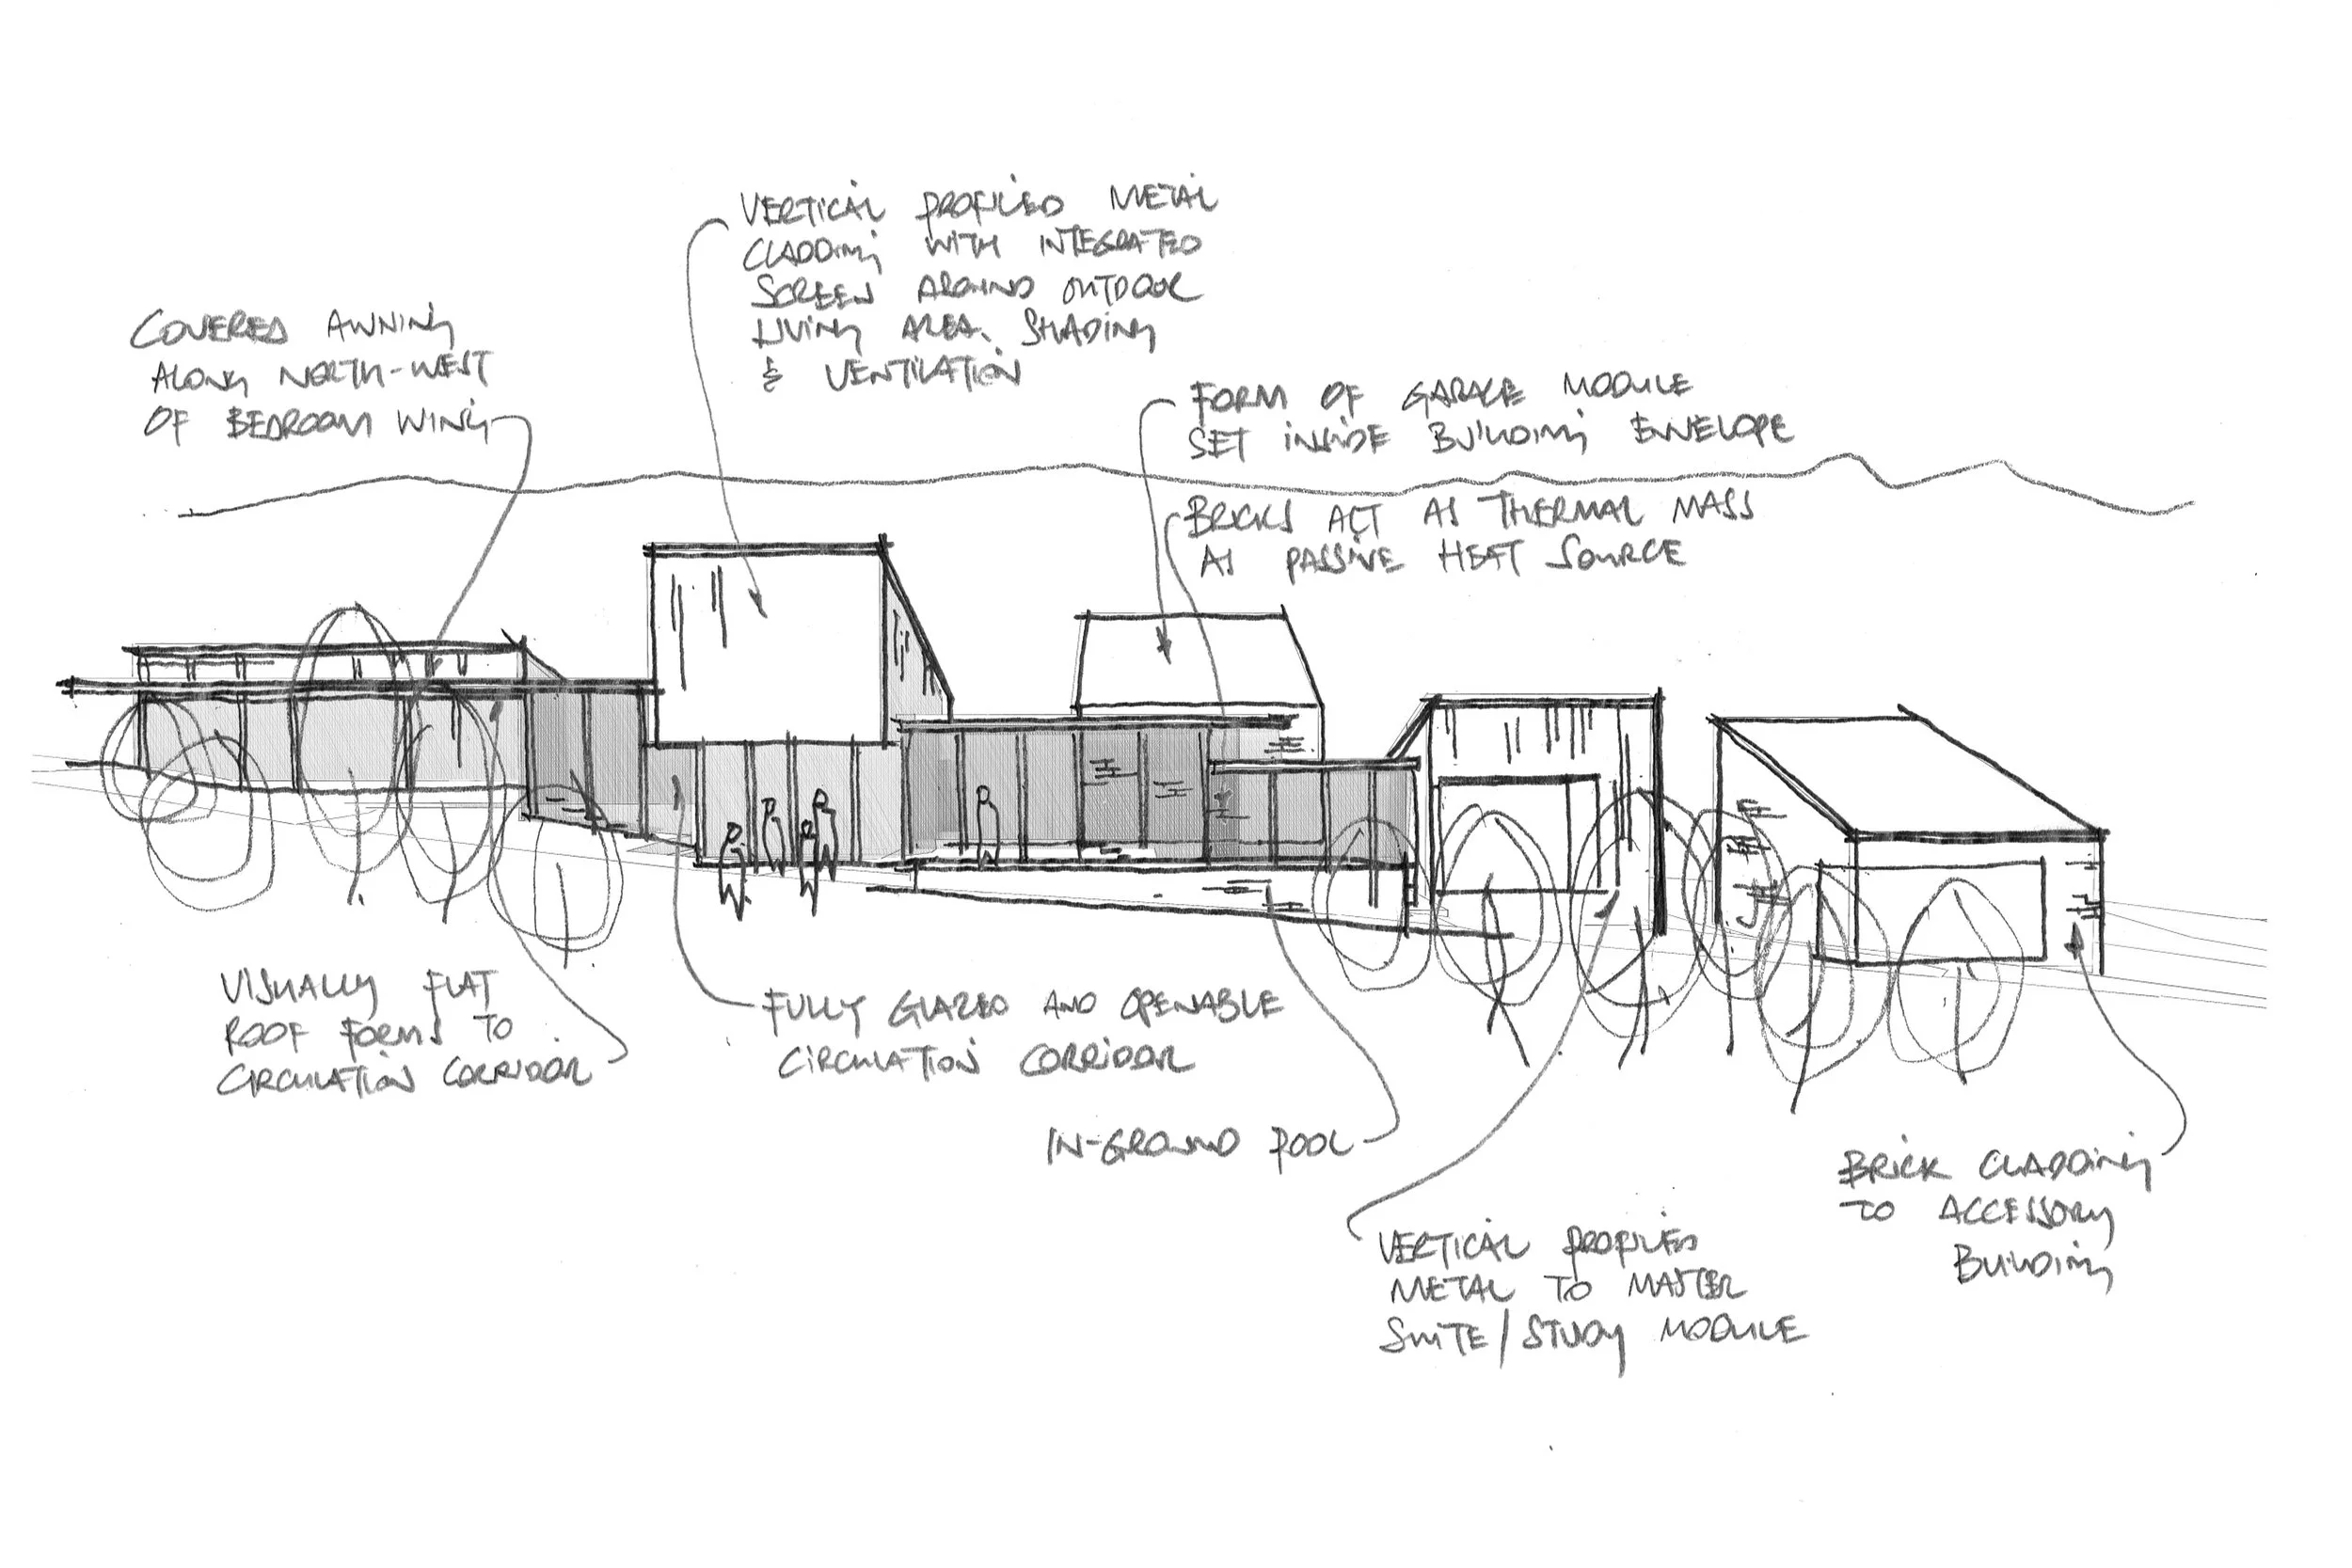 VERTICAL PROFILED METAL
CLADDING WITH INTEGRATED
SCREEN AROUND OUTDOOR
LIVING AREA. SHADING
& VENTILATION
COVERED AWNING
ALONG NORTH-WEST
OF BEDROOM WING
FORM OF GARAGE MODULE
SET INSIDE BUILDING ENVELOPE
BRICKS ACT AS THERMAL MASS
AS PASSIVE HEAT SOURCE
VISUALLY FLAT
ROOF FORMS TO
CIRCULATION CORRIDOR
FULLY GLAZED AND OPENABLE
CIRCULATION CORRIDOR
IN-GROUND POOL
VERTICAL PROFILED
METAL TO MASTER
SUITE/STUDY MODULE
BRICK CLADDING
TO ACCESSORY
BUILDING